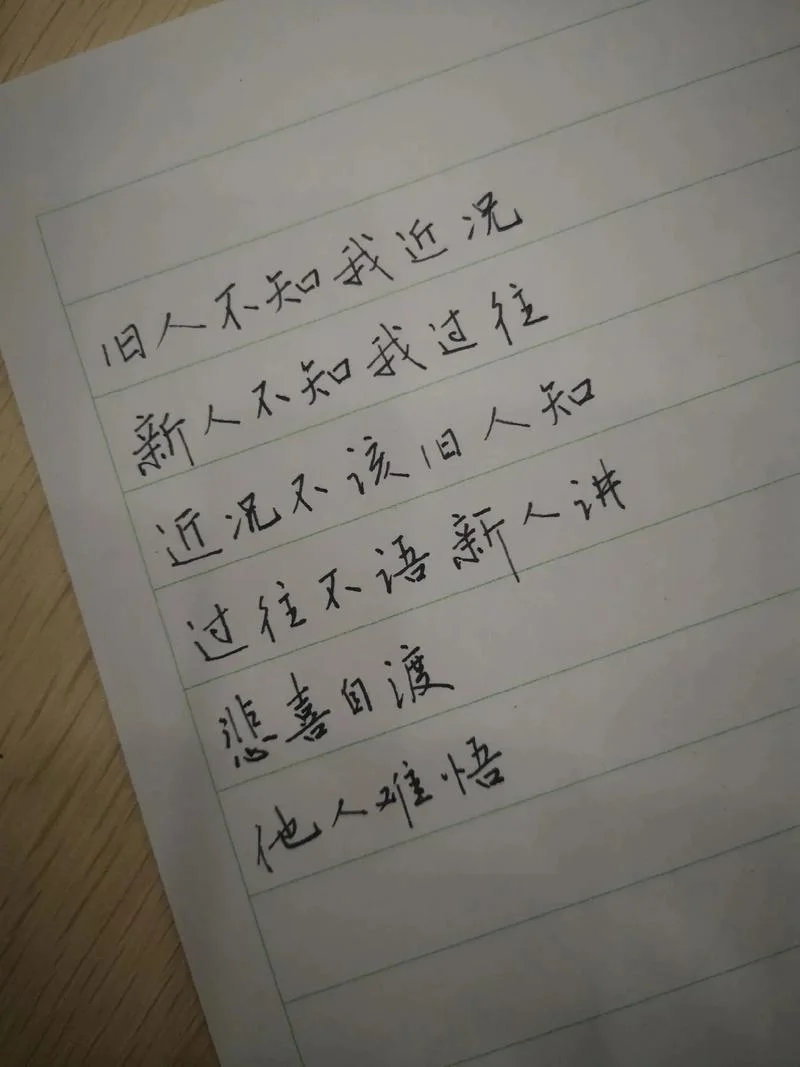 旧人不知我近况
新人不知我过往
近况不该旧人知
过往不语新人讲
悲喜自渡
他人难悟